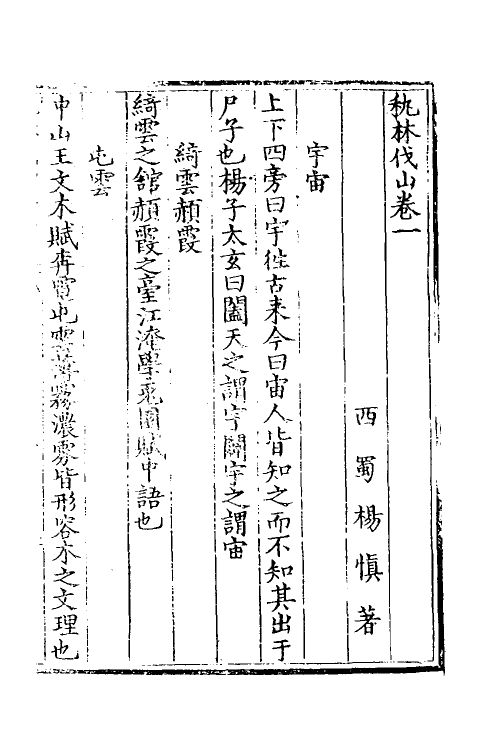 秇林伐山卷一
西蜀楊愼著
宇宙
上下四旁曰宇徃古来今曰宙人皆知之而不知其出于
尸子也楊子太玄曰闔天之謂宇闢宇之謂宙
綺雲赬霞
綺雲之舘赬霞之臺江淹學兎園賦中語也
屯雲
中山王文木賦奔電屯雲薄霧濃雰皆形容木之文理也